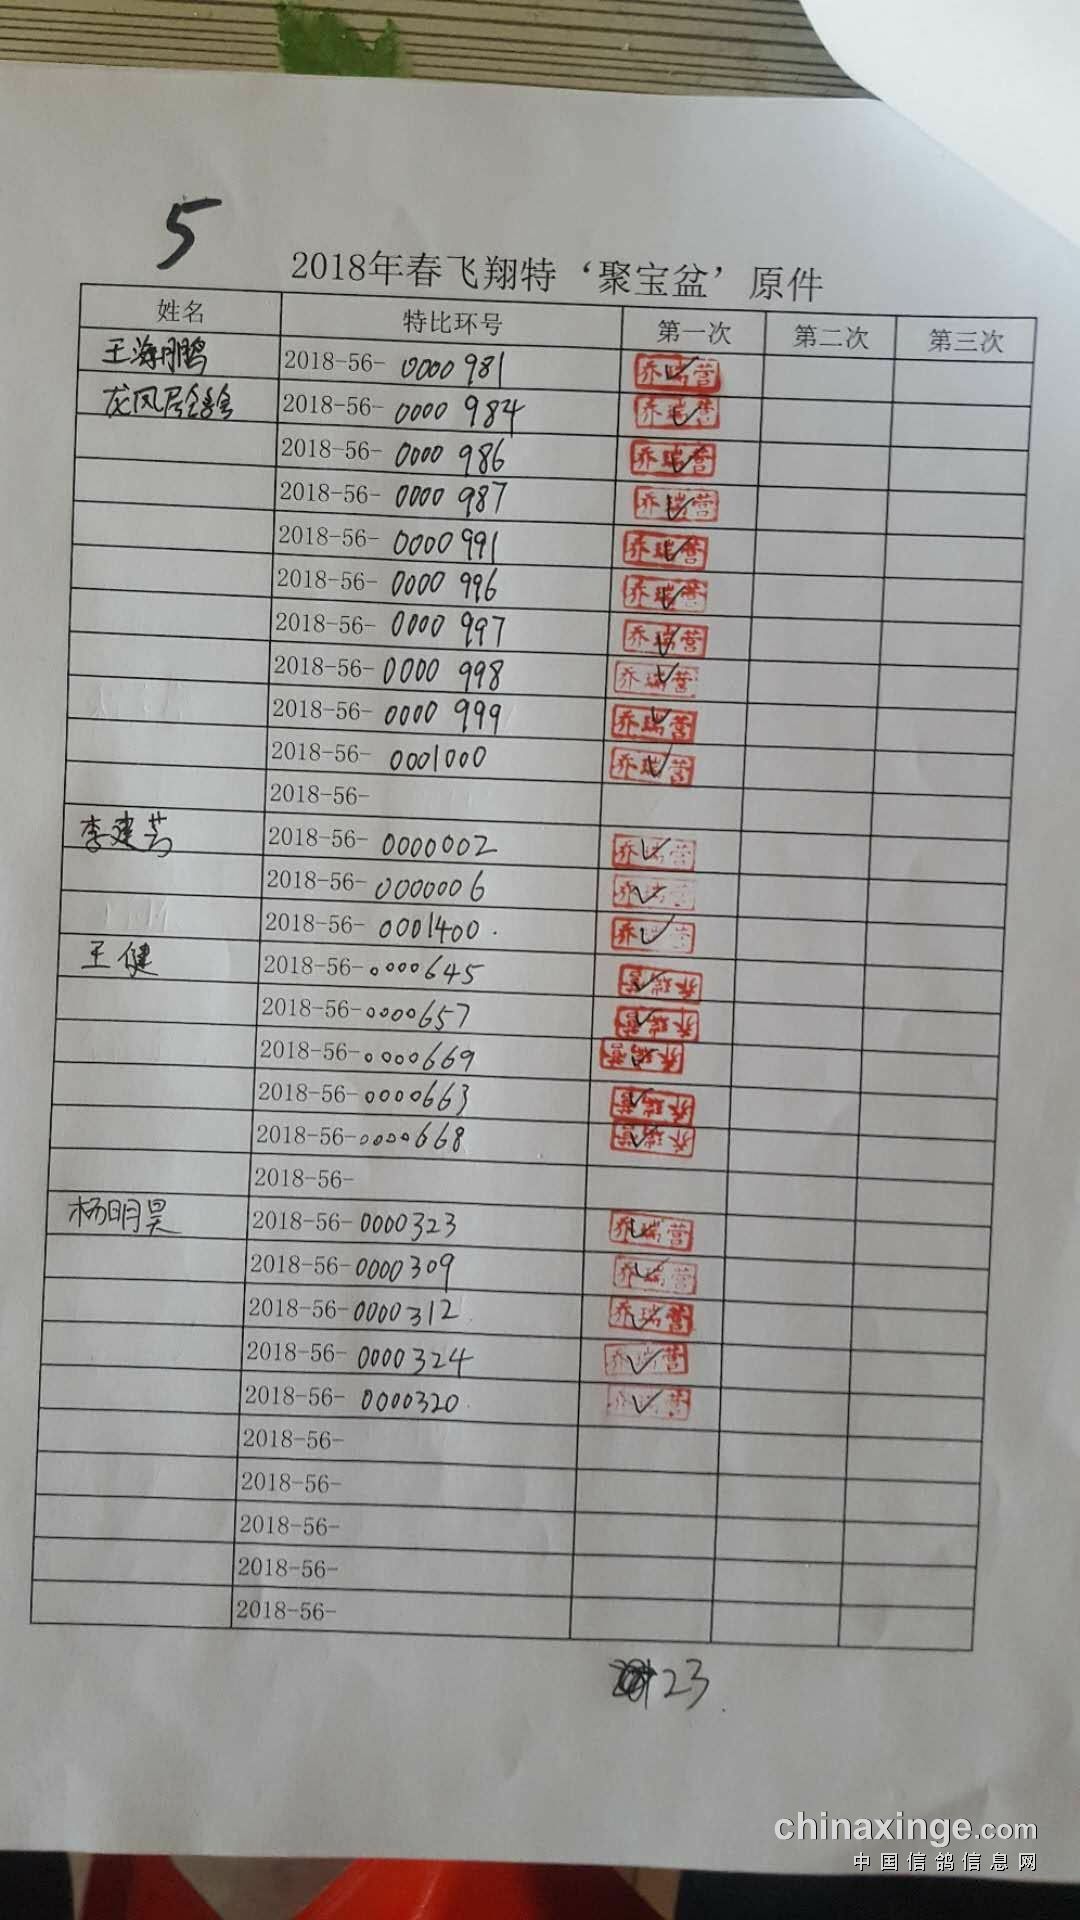 5
2018年春飞翔特‘聚宝盆’原件
姓名 特比环号 第一次 第二次 第三次
王海鹏 2018-56-0000981 乔瑞营
龙凤居 2018-56-0000984 乔瑞营
2018-56-0000986 乔瑞营
2018-56-0000987 乔瑞营
2018-56-0000991 乔瑞营
2018-56-0000996 乔瑞营
2018-56-0000997 乔瑞营
2018-56-0000998 乔瑞营
2018-56-0000999 乔瑞营
2018-56-0001000 乔瑞营
2018-56-
李建芳 2018-56-0000002 乔瑞营
2018-56-0000006 乔瑞营
2018-56-0001400. 乔瑞营
王健 2018-56-0000645 乔瑞营
2018-56-0000657 乔瑞营
2018-56-0000669 乔瑞营
2018-56-0000663 乔瑞营
2018-56-0000668 乔瑞营
2018-56-
杨明昊 2018-56-0000323 乔瑞营
2018-56-0000309 乔瑞营
2018-56-0000312 乔瑞营
2018-56-0000324 乔瑞营
2018-56-0000320 乔瑞营
2018-56-
2018-56-
2018-56-
2018-56-
2018-56-
23
chinaxinge.com
中国信鸽信息网